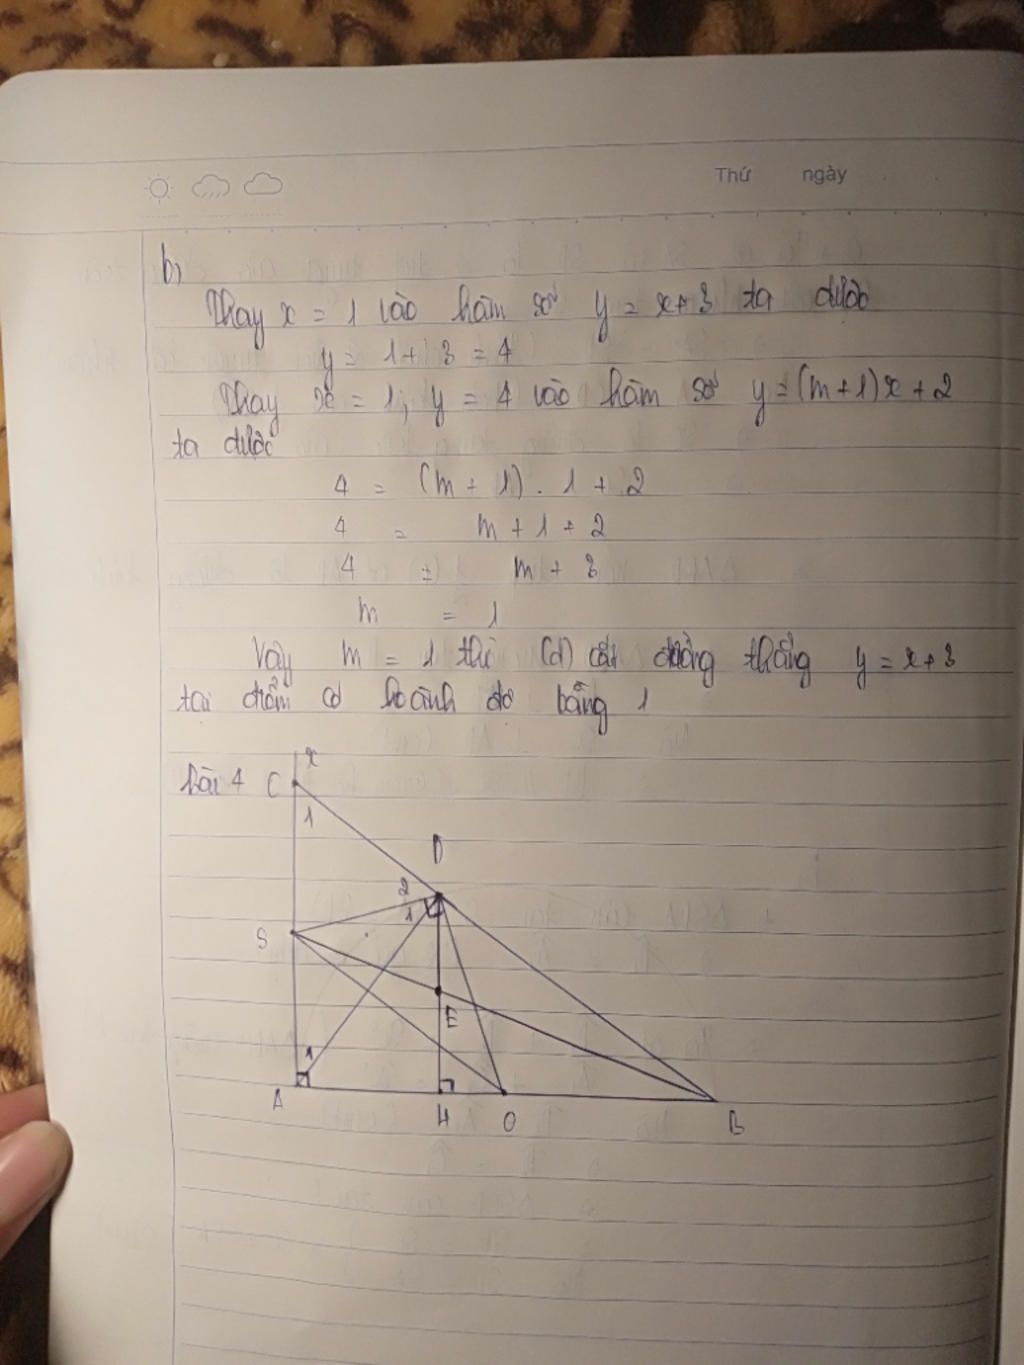 Thứ ngày
b)
Thay x = 1 vào hàm số y = x+3 ta được
y = 1+ 3 = 4
Thay x = 1; y = 4 vào hàm số y = (m+1)x + 2
ta được
4 = (m + 1) . 1 + 2
4 = m + 1 + 2
4 = m + 3
m = 1
Vậy m = 1 thì (d) cắt đường thẳng y = x+3
tại điểm có hoành độ bằng 1
x
bài 4 C
1
D
2
1
S
E
1
A H O B